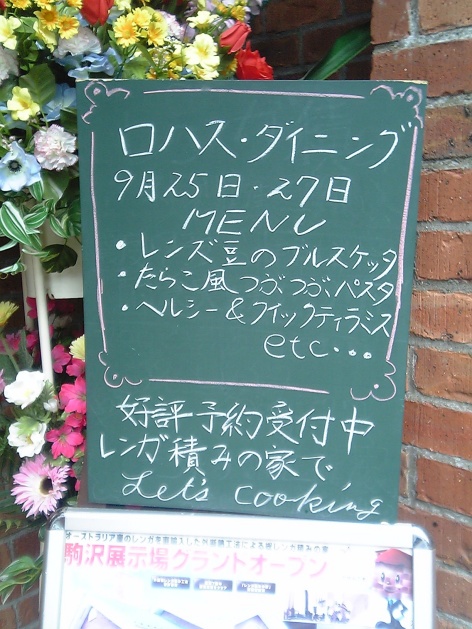 ロハス・ダイニング
9月25日・27日
MENU
・レンズ豆のブルスケッタ
・たらこ風つぶつぶパスタ
・ヘルシー&クイックティラミス
etc・・・
好評予約受付中
レンガ積みの家で
Let's cooking
駒沢展示場グランドオープン